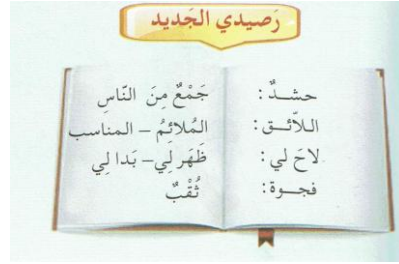 رَصيدي الجَديد
حشدٌ : جَمْعٌ مِنَ النَّاسِ
اللّائق : المُلائِمُ – المناسب
لاحَ لي : ظَهَر لِي – بَدا لِي
فجوة : ثُقْبٌ